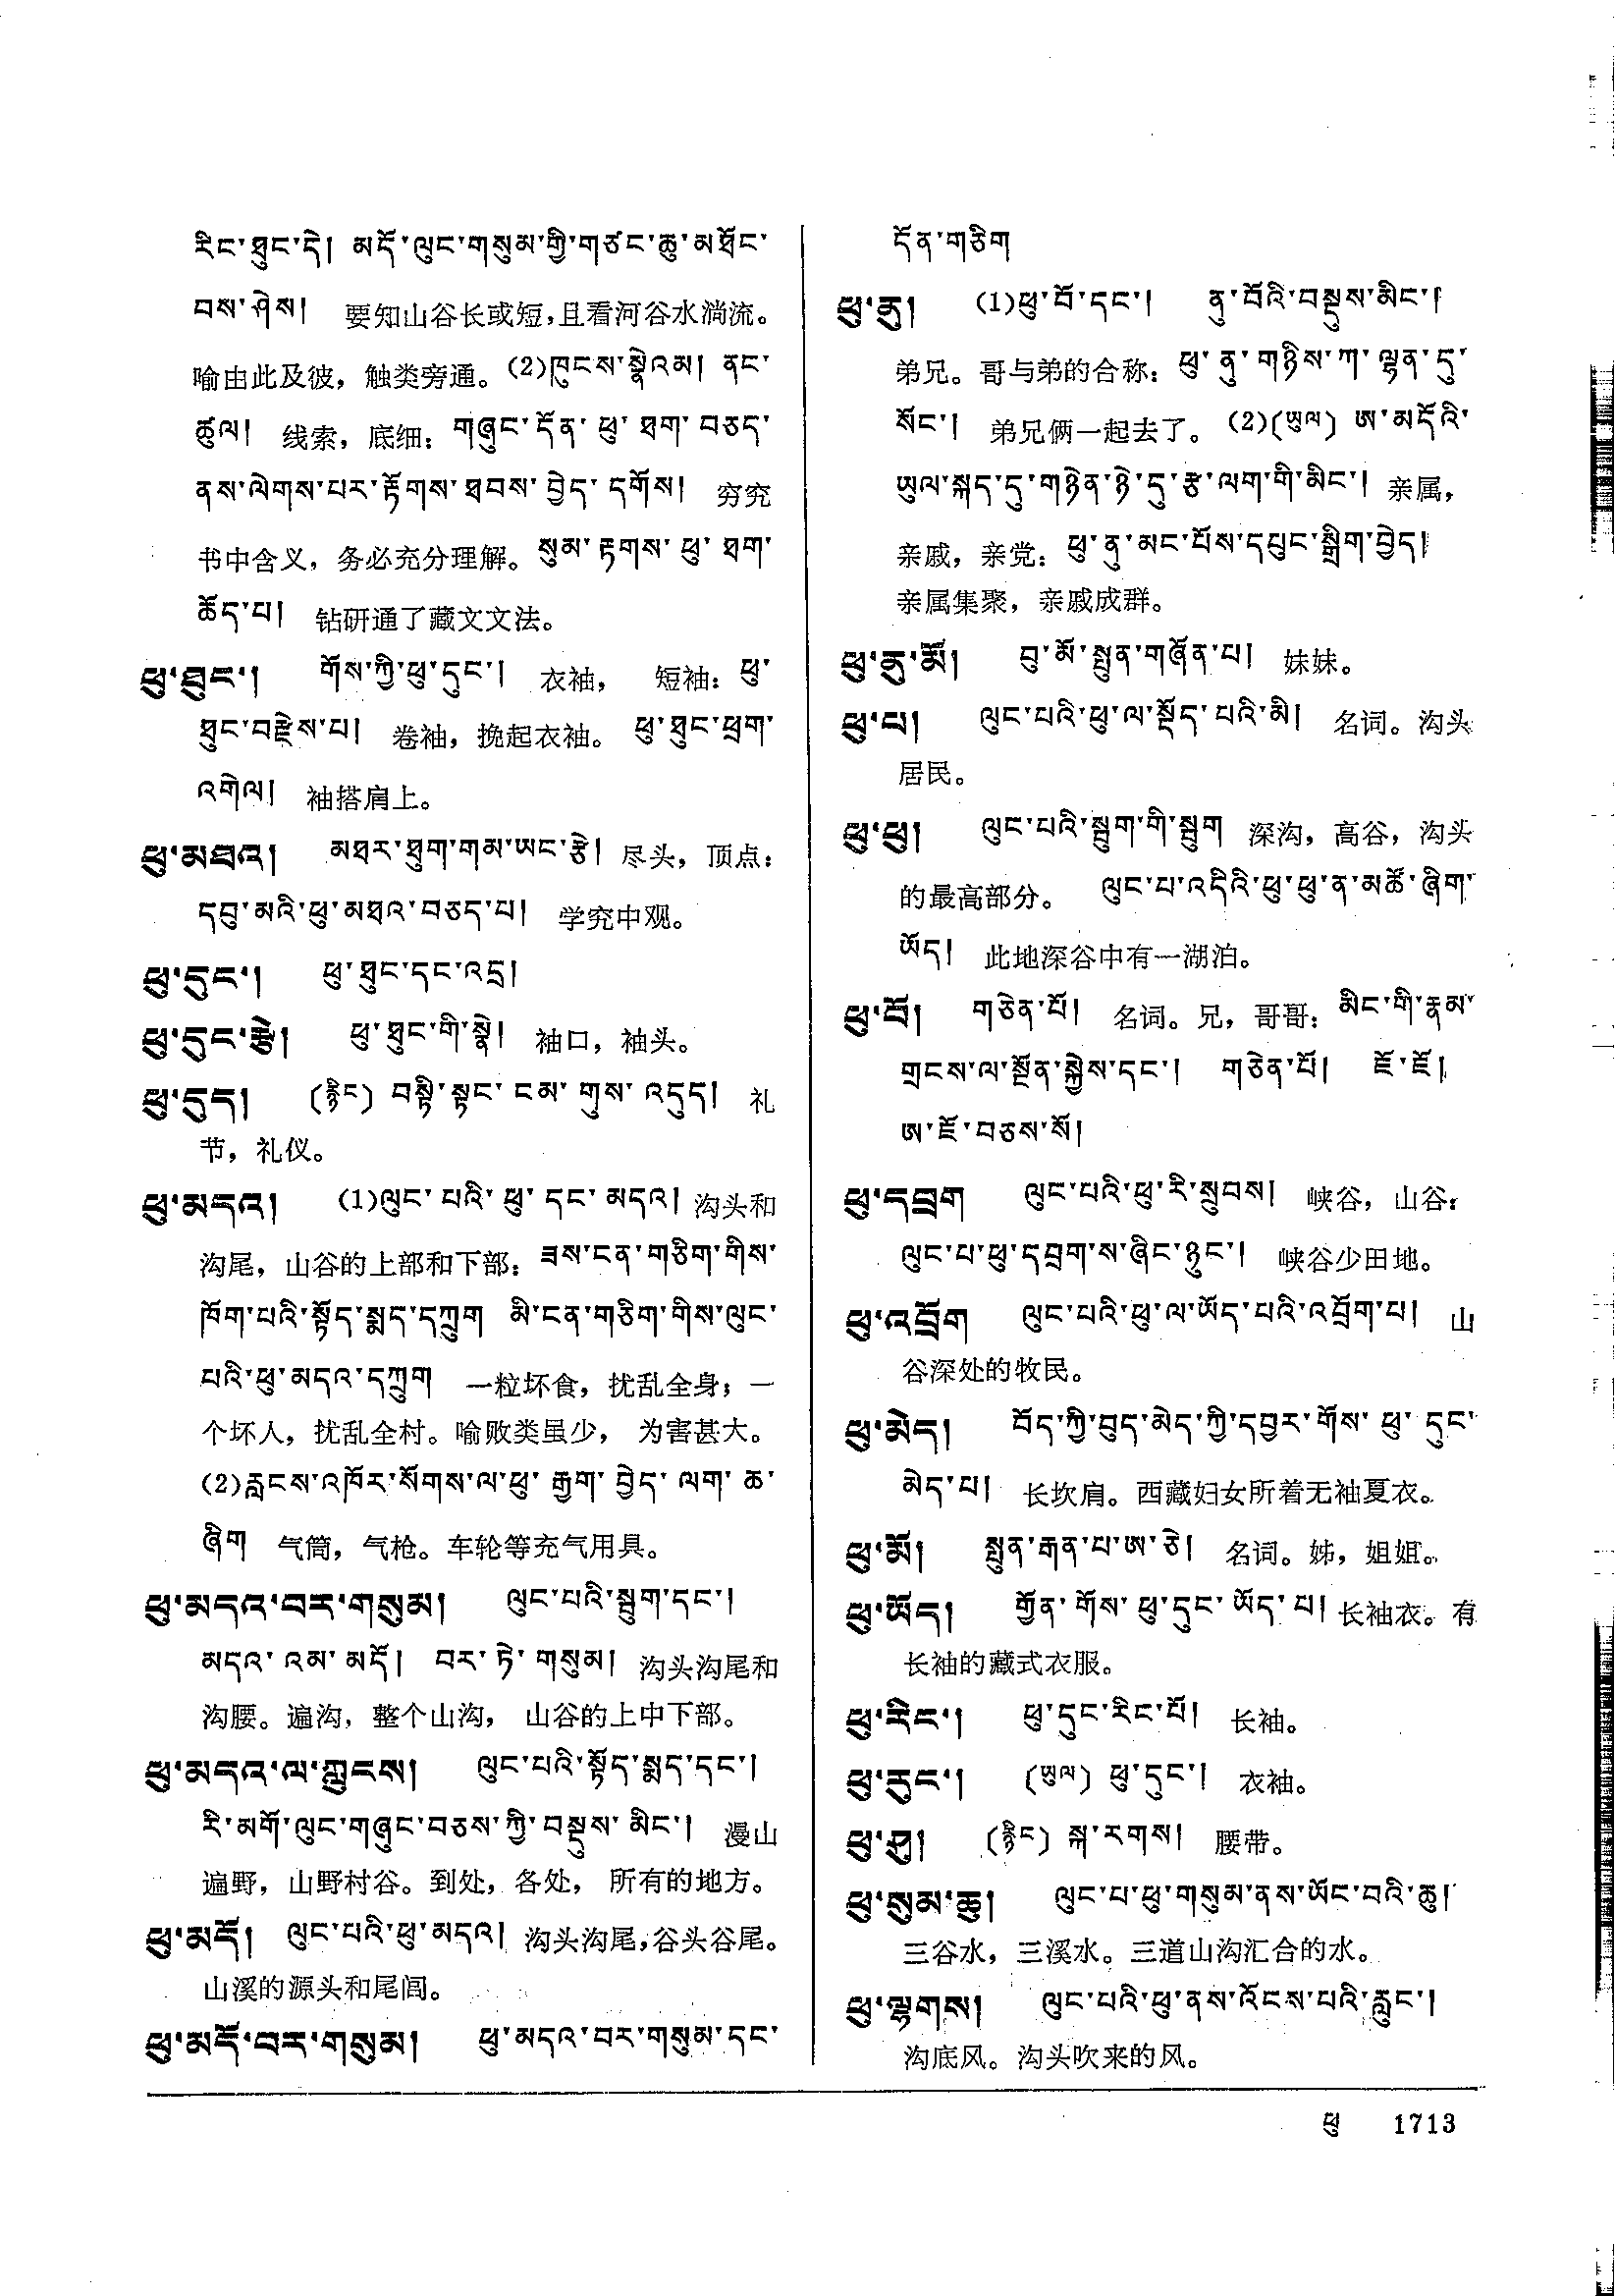 རིང་ཐུང་དེ། མདོ་ལུང་གསུམ་གྱི་གཙང་ཆུ་མཐོང་
བས་ཤེས། 要知山谷长或短，且看河谷水淌流。
喻由此及彼，触类旁通。(2)ཁུངས་སྣེའམ། ནང་
ཚུལ། 线索，底细：གཞུང་དོན་ཕུ་ཐག་བཅད་
ནས་ལེགས་པར་རྟོགས་ཐབས་བྱེད་དགོས། 穷究
书中含义，务必充分理解。སུམ་རྟགས་ཕུ་ཐག་
ཆོད་པ། 钻研通了藏文文法。
ཕུ་ཐུང་། གོས་ཀྱི་ཕུ་དུང་། 衣袖， 短袖：ཕུ་
ཐུང་བརྫེས་པ། 卷袖，挽起衣袖。 ཕུ་ཐུང་ཕྲག་
འགེལ། 袖搭肩上。
ཕུ་མཐའ། མཐར་ཐུག་གམ་ཡང་རྩེ། 尽头，顶点：
དབུ་མའི་ཕུ་མཐའ་བཅད་པ། 学究中观。
ཕུ་དུང་། ཕུ་ཐུང་དང་འདྲ།
ཕུ་དུང་རྩེ། ཕུ་ཐུང་གི་སྣེ། 袖口，袖头。
ཕུ་དུད། (རྙིང) བསྟི་སྟང་ངམ་གུས་འདུད། 礼
节，礼仪。
ཕུ་མདའ། (1)ལུང་པའི་ཕུ་དང་མདའ། 沟头和
沟尾，山谷的上部和下部：ཟས་ངན་གཅིག་གིས་
ཁོག་པའི་སྟོད་སྨད་དཀྲུག མི་ངན་གཅིག་གིས་ལུང་
པའི་ཕུ་མདའ་དཀྲུག 一粒坏食，扰乱全身；一
个坏人，扰乱全村。喻败类虽少， 为害甚大。
(2)རླངས་འཁོར་སོགས་ལ་ཕུ་རྒྱག་བྱེད་ལག་ཆ་
ཞིག 气筒，气枪。车轮等充气用具。
ཕུ་མདའ་བར་གསུམ། ལུང་པའི་སྦུག་དང་།
མདའ་འམ་མདོ། བར་ཏེ་གསུམ། 沟头沟尾和
沟腰。遍沟，整个山沟， 山谷的上中下部。
ཕུ་མདའ་ལ་ཀླུངས། ལུང་པའི་སྟོད་སྨད་དང་།
རི་མགོ་ལུང་གཞུང་བཅས་ཀྱི་བསྡུས་མིང་། 漫山
遍野，山野村谷。到处，各处， 所有的地方。
ཕུ་མདོ། ལུང་པའི་ཕུ་མདའ། 沟头沟尾，谷头谷尾。
山溪的源头和尾闾。
ཕུ་མདོ་བར་གསུམ། ཕུ་མདའ་བར་གསུམ་དང་
དོན་གཅིག
ཕུ་ནུ། (1)ཕུ་བོ་དང་། ནུ་བོའི་བསྡུས་མིང་།
弟兄。哥与弟的合称：ཕུ་ནུ་གཉིས་ཀ་ལྷན་དུ་
སོང་། 弟兄俩一起去了。(2)(ཡུལ) ཨ་མདོའི་
ཡུལ་སྐད་དུ་གཉེན་ཉེ་དུ་རྩ་ལག་གི་མིང་། 亲属，
亲戚，亲党：ཕུ་ནུ་མང་པོས་དཔུང་སྒྲིག་བྱེད།
亲属集聚，亲戚成群。
ཕུ་ནུ་མོ། བུ་མོ་སྤུན་གཞོན་པ། 妹妹。
ཕུ་པ། ལུང་པའི་ཕུ་ལ་སྡོད་པའི་མི། 名词。沟头
居民。
ཕུ་ཕུ། ལུང་པའི་སྦུག་གི་སྦུག 深沟，高谷，沟头
的最高部分。 ལུང་པ་འདིའི་ཕུ་ཕུ་ན་མཚོ་ཞིག་
ཡོད། 此地深谷中有一湖泊。
ཕུ་བོ། གཅེན་པོ། 名词。兄，哥哥：མིང་གི་རྣམ་
གྲངས་ལ་སྔོན་སྐྱེས་དང་། གཅེན་པོ། ཇོ་ཇོ།
ཨ་ཇོ་བཅས་སོ།
ཕུ་དབྲག ལུང་པའི་ཕུ་རི་སྲུབས། 峡谷，山谷：
ལུང་པ་ཕུ་དབྲག་ས་ཞིང་ཉུང་། 峡谷少田地。
ཕུ་འབྲོག ལུང་པའི་ཕུ་ལ་ཡོད་པའི་འབྲོག་པ། 山
谷深处的牧民。
ཕུ་མེད། བོད་ཀྱི་བུད་མེད་ཀྱི་དབྱར་གོས་ཕུ་དུང་
མེད་པ། 长坎肩。西藏妇女所着无袖夏衣。
ཕུ་མོ། སྤུན་རྒན་པ་ཨ་ཅེ། 名词。姊，姐姐。
ཕུ་ཡོད། གྱོན་གོས་ཕུ་དུང་ཡོད་པ། 长袖衣。有
长袖的藏式衣服。
ཕུ་རིང་། ཕུ་དུང་རིང་པོ། 长袖。
ཕུ་རུང་། (ཡུལ) ཕུ་དུང་། 衣袖。
ཕུ་ཤུ། (རྙིང) སྐ་རགས། 腰带。
ཕུ་སུམ་ཆུ། ལུང་པ་ཕུ་གསུམ་ནས་ཡོང་བའི་ཆུ།
三谷水，三溪水。三道山沟汇合的水。
ཕུ་ལྷགས། ལུང་པའི་ཕུ་ནས་འོངས་པའི་རླུང་།
沟底风。沟头吹来的风。
ཕུ 1713